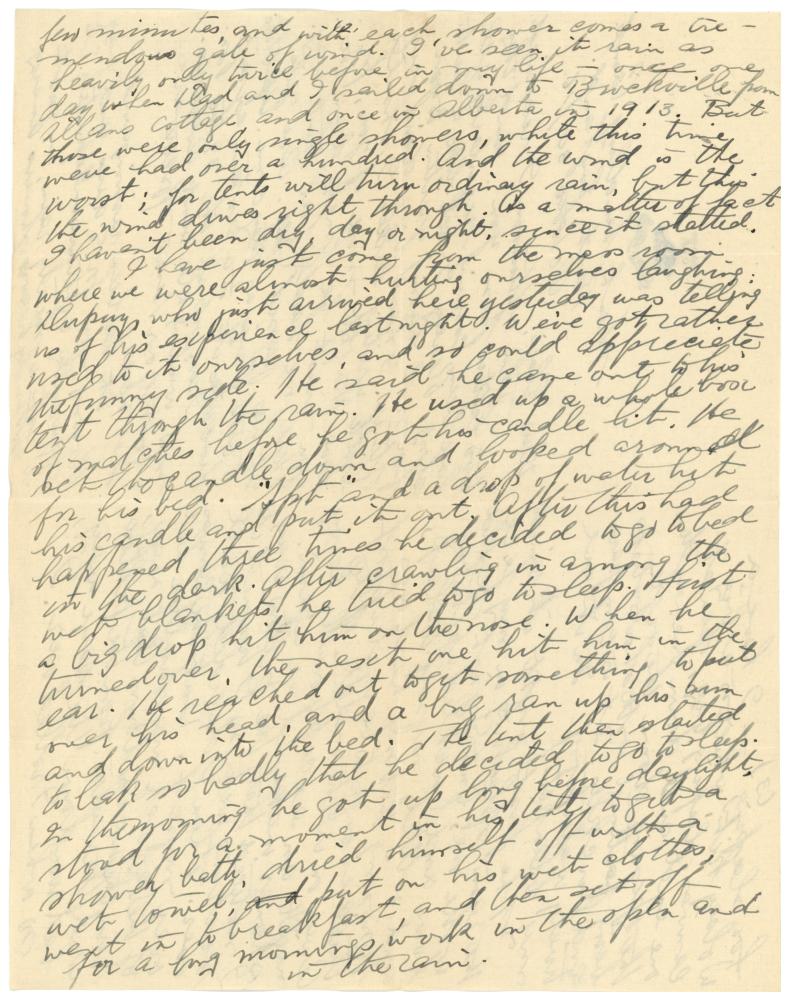 few minutes, and with each shower comes a tre-
mendous gale of wind. I've seen it rain as
heavily only twice before in my life – once one
day when Dad and I sailed down to Brockville from
Allans cottage and once in Alberta in 1913. But
those were only single showers, while this time
we've had over a hundred. And the wind is the
worst; for tents will turn ordinary rain, but this
the wind drives right through. As a matter of fact
I haven't been dry, day or night, since it started.
I have just come from the mess room
where we were almost hurting ourselves laughing.
Dupuy, who just arrived here yesterday was telling
us of his experience last night. We've got rather
used to it ourselves, and so could appreciate
the funny side. He said he came out to his
tent through the rain. He used up a whole box
of matches before he got his candle lit. He
set the candle down and looked around
for his bed. "Spt" and a drop of water hit
his candle and put it out. After this had
happened three times he decided to go to bed
in the dark. After crawling in among the
wet blankets, he tried to go to sleep. First
a big drop hit him on the nose. When he
turned over, the next one hit him in the
ear. He reached out to get something to put
over his head, and a bug ran up his arm
and down into the bed. The tent then started
to leak so badly that he decided to go to sleep.
In the morning he got up long before daylight,
stood for a moment in his tent to get a
shower bath, dried himself off with a
wet towel, and put on his wet clothes,
went in to breakfast, and then set off
for a long mornings work in the open and
in the rain.